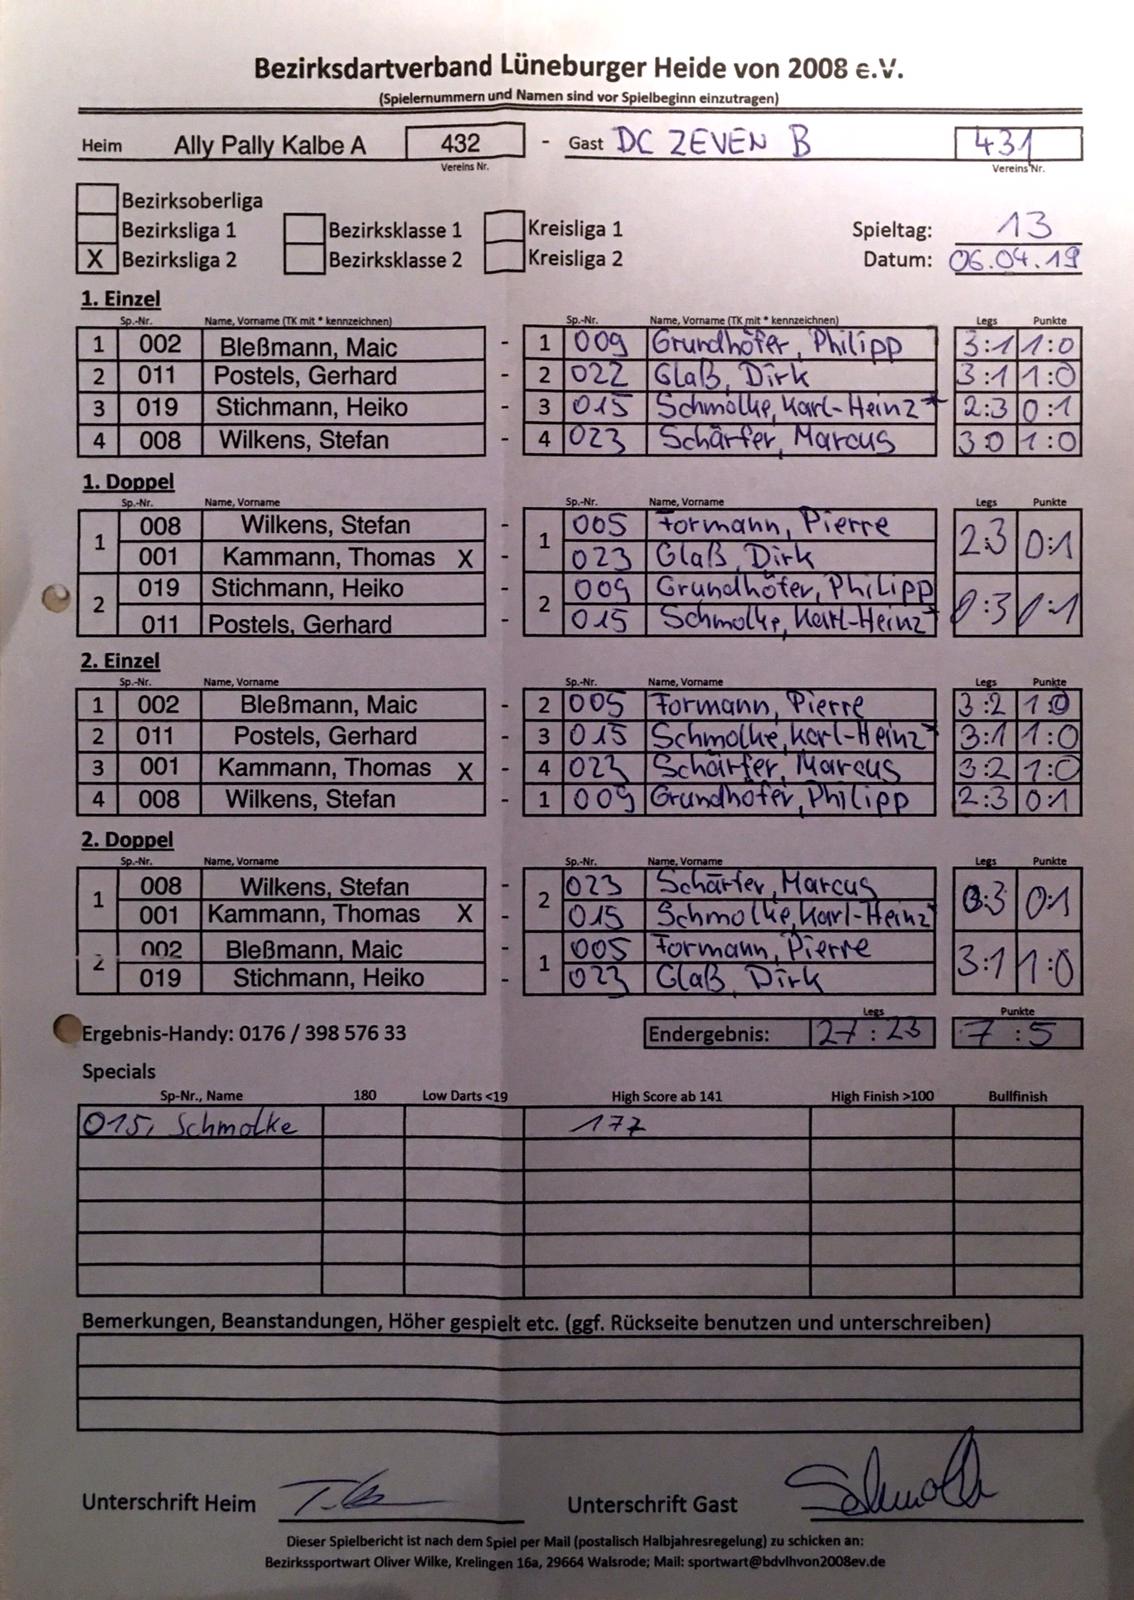 Bezirksdartverband Lüneburger Heide von 2008 e.V.
(Spielernummern und Namen sind vor Spielbeginn einzutragen)
Heim Ally Pally Kalbe A 432 - Gast DC ZEVEN B 431
Vereins Nr. Vereins Nr.
Bezirksoberliga
Bezirksliga 1 Bezirksklasse 1 Kreisliga 1 Spieltag: 13
X Bezirksliga 2 Bezirksklasse 2 Kreisliga 2 Datum: 06.04.19
1. Einzel
Sp.-Nr. Name, Vorname (TK mit * kennzeichnen) Sp.-Nr. Name, Vorname (TK mit * kennzeichnen) Legs Punkte
1 002 Bleßmann, Maic - 1 009 Grundhöfer, Philipp 3:1 1:0
2 011 Postels, Gerhard - 2 022 Glaß, Dirk 3:1 1:0
3 019 Stichmann, Heiko - 3 015 Schmolke, Karl-Heinz* 2:3 0:1
4 008 Wilkens, Stefan - 4 023 Schärfer, Marcus 3:0 1:0
1. Doppel
Sp.-Nr. Name, Vorname Sp.-Nr. Name, Vorname Legs Punkte
1 008 Wilkens, Stefan - 1 005 Formann, Pierre 2:3 0:1
001 Kammann, Thomas X - 023 Glaß, Dirk
2 019 Stichmann, Heiko - 2 009 Grundhöfer, Philipp 0:3 0:1
011 Postels, Gerhard 015 Schmolke, Karl-Heinz*
2. Einzel
Sp.-Nr. Name, Vorname Sp.-Nr. Name, Vorname Legs Punkte
1 002 Bleßmann, Maic - 2 005 Formann, Pierre 3:2 1:0
2 011 Postels, Gerhard - 3 015 Schmolke, Karl-Heinz* 3:1 1:0
3 001 Kammann, Thomas X - 4 023 Schärfer, Marcus 3:2 1:0
4 008 Wilkens, Stefan - 1 009 Grundhöfer, Philipp 2:3 0:1
2. Doppel
Sp.-Nr. Name, Vorname Sp.-Nr. Name, Vorname Legs Punkte
1 008 Wilkens, Stefan - 2 023 Schärfer, Marcus 0:3 0:1
001 Kammann, Thomas X - 015 Schmolke, Karl-Heinz*
2 002 Bleßmann, Maic - 1 005 Formann, Pierre 3:1 1:0
019 Stichmann, Heiko - 023 Glaß, Dirk
Legs Punkte
Ergebnis-Handy: 0176 / 398 576 33 Endergebnis: 27 : 23 7 : 5
Specials
Sp-Nr., Name 180 Low Darts <19 High Score ab 141 High Finish >100 Bullfinish
015, Schmolke 177
Bemerkungen, Beanstandungen, Höher gespielt etc. (ggf. Rückseite benutzen und unterschreiben)
Unterschrift Heim Unterschrift Gast
Dieser Spielbericht ist nach dem Spiel per Mail (postalisch Halbjahresregelung) zu schicken an:
Bezirkssportwart Oliver Wilke, Krelingen 16a, 29664 Walsrode; Mail: sportwart@bdvlhvon2008ev.de